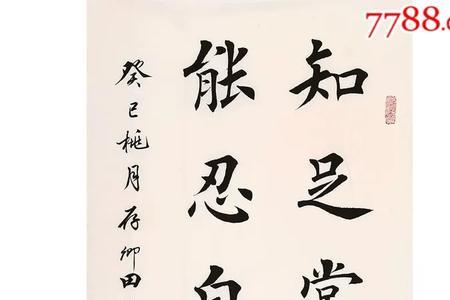 7788.c
知足常
能忍自
癸巳桃月存卿田